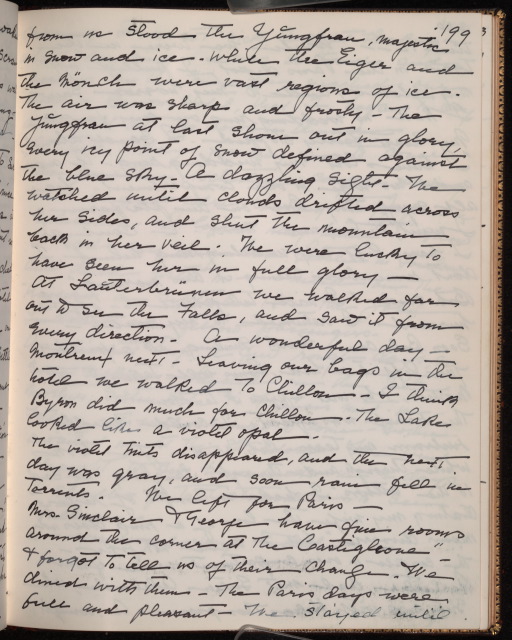 199
from us stood the Yüngfrau, majestic
in snow and ice. While the Eiger and
the Mönch were vast regions of ice.
The air was sharp and frosty - The
Yüngfrau at last shone out in glory,
every icy point of snow defined against
the blue sky - A dazzling sight - We
watched until clouds drifted across
her sides, and shut the mountain
back in her veil. We were lucky to
have seen her in full glory -
At Lauterbrünen we walked far
out to see the Falls, and saw it from
every direction - A wonderful day -
Montreux next - Leaving our bags in the
hotel we walked to Chillon - I think
Byron did much for Chillon - The Lake
looked like a violet opal -
The violet tints disappeared, and the next
day was gray, and soon rain fell in
Torrents. We left for Paris -
Mrs. Sinclair & George have fine rooms
around the corner at the "Castiglione" -
& forgot to tell us of their change. We
dined with them - The Paris days were
full and pleasant - We stayed until